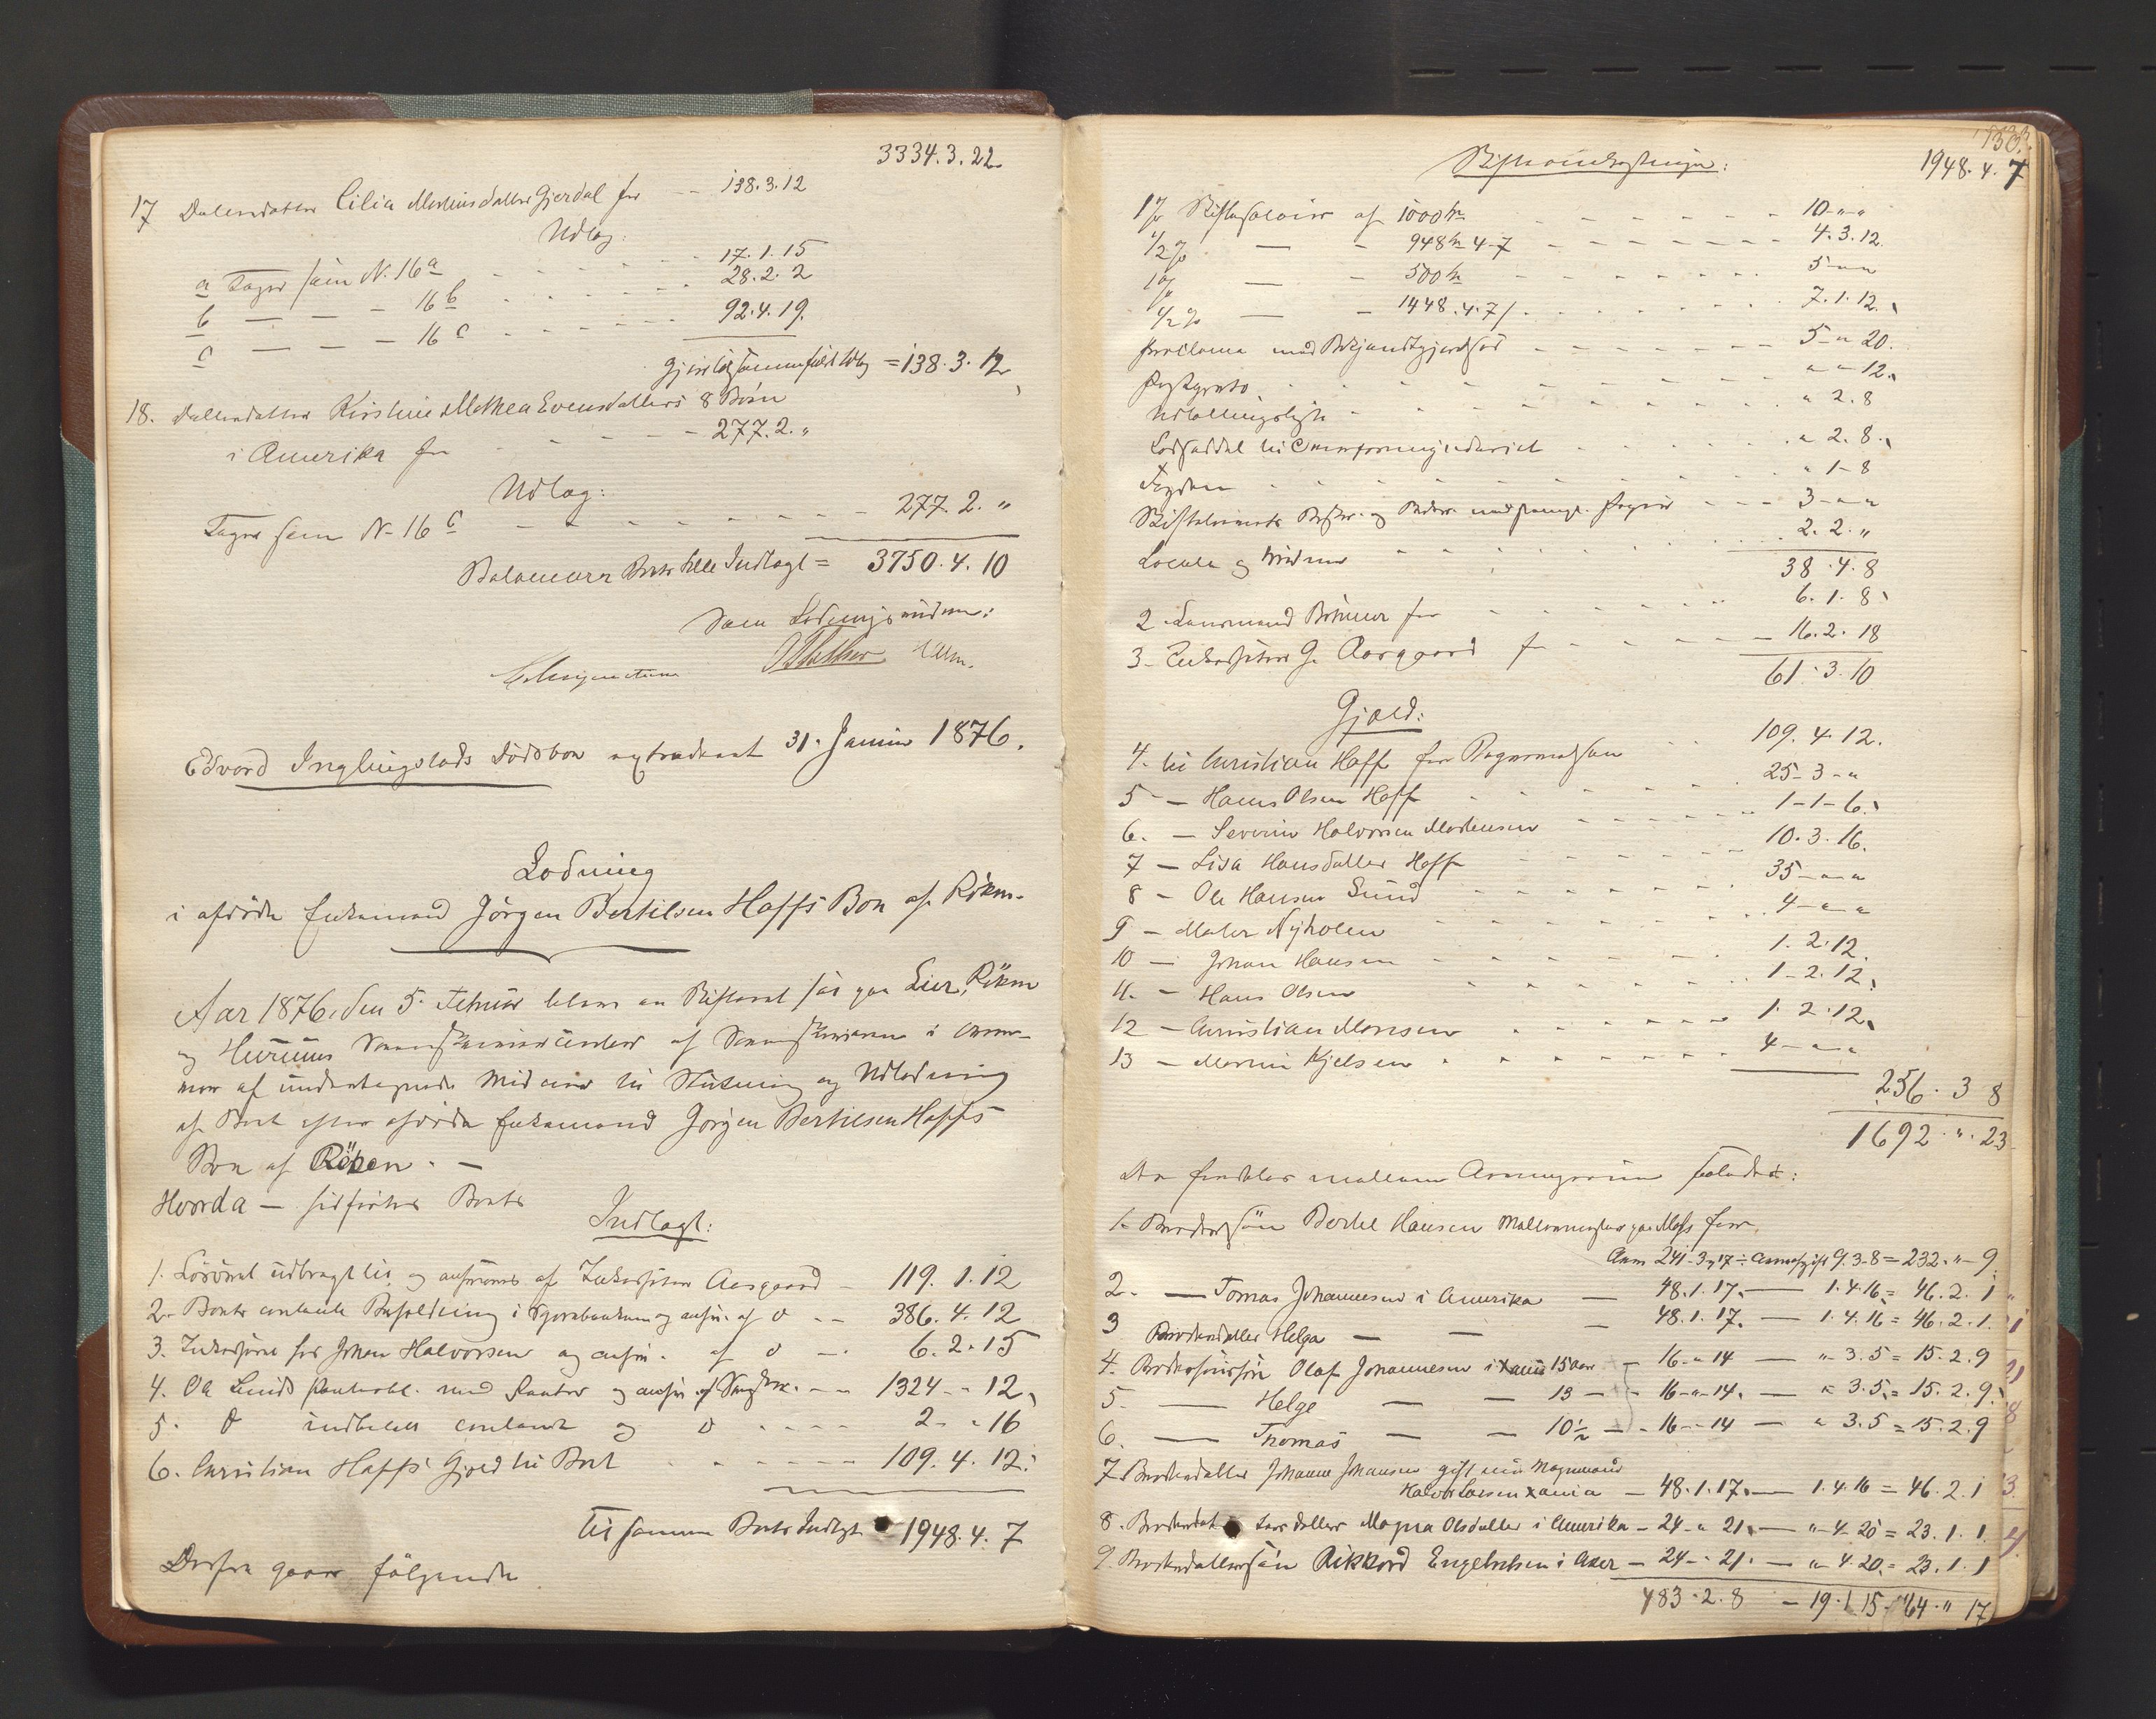 3334.3.22
17 Datterdatter Cilia Mortinsdatter Gjerdal for - - 138.3.12
Udlæg:
a Tager som N. 16 a - - - - 17.1.15
b — — - 16 b - - - - 28.2.2
c — — - 16 c - - - - 92.4.19.
Udlæg = 138.3.12
18. Datterdatter Kirstine Mathea Evensdatters 8 Børn
i Amerika for - - - - 277.2.„
Udlæg:
Tager som N. 16 c - - - - 277.2.„
Balancerer Boets hele Indtægt = 3750.4.10
Som Lodningsmidner:
Edvard Inglingstads Dødsbo extraderet 31. Januar 1876.
Lodning
i afdøde Enkemand Jörgen Bertilsen Haffs Bo af Röken.
Aar 1876, den 5. Februar blev en Skifteret sat paa Lier, Röken
og Hurums Sorenskrivercontor af Sorenskriveren i Over-
vær af undertegnede Vidner til Slutning og Udlodning
af Boet efter afdøde Enkemand Jörgen Bertilsen Haffs
Bo af Röken. —
Hvorda — Boets
Indtægt:
1. Lösöret udbragt til, og ansvares af Inkassator Aasgaard - 119.1.12
2. Boets contante Beholdning i Sparebanken og ansv. af d - - 386.4.12
3. Inkasseret hos Johan Halvorsen og ansv. af d - 6.2.15
4. Ole Sunds Panteobl. med Renter og ansv. af - - 1324 - - 12
5. d indbetalt contant og d - - - - 2 - - 16
6. Christian Haffs Gjeld til Boet - - - - 109.4.12
Tilsammen Boets Indtægt 1948.4.7
Derfra gaar følgende
130.
1948.4.7
Skifteomkostninger:
1 % Skiftesalair af 1000 - - - - 10 - „ - „
1/2 % — - 948 4-7 - - - - 4.3.12.
1 % — - 500 - - - - 5 - „ „
1/2 % — - 1448.4.7 - - - - 7.1.12.
Proclama med Bekjendtgjørelse - - - - 5 - „ 20.
Postporto - - - - „ - „ 12.
Udlodningsafgift - - - - „ 2.8
Lodseddel til Overformynderiet - - - - „ 2.8
Fogden - - - - „ 1-8
- - - 3 - „ „
Locale og Vidner - - - - 2.2.„
38.4.8
2. Lensmand for - - - - 6.1.8
3. Inkassator G. Aasgaard for - - - - 16.2.18
61.3.10
Gjæld:
4. til Christian Haff for - - 109.4.12.
5 — Hans Olsen Haff - - - - 25-3-„
6. — Severin Halvorsen Mortensen - - - - 1-1-6.
7 — Lisa Hansdatter Haff - - - - 10.3.16.
8 — Ole Hansen Sund - - - - 35 - „ „
9 — Maler Nyholm - - - - 4 - „ „
10 — Johan Hansen - - - - 1.2.12.
11. — Hans Olsen - - - - 1-2.12.
12 — Christian Monsen - - - - 1.2.12.
13 — Martin Kjelsen - - - - 4 - „ „
256.3 8
1692.„.23
Der fordeles mellem Arvingerne saaledes:
1. Brodersøn Bertel Hansen paa Moss for
Arv 241-3-17 ÷ Arveafgift 9.3.8 = 232.„-9.
2. — Tomas Johannesen i Amerika — 48.1.17. — 1.4.16 = 46.2.1
3 Broderdatter Helga — — — 48.1.17. — 1.4.16 = 46.2.1.
4. Brodersønssøn Olaf Johannesen i Xania 15 Aar - 16-„14 — „-3.5 = 15.2.9
5. — Helge — — 13 — - 16-„14. — „ 3.5 = 15.2.9.
6. — Thomas — — 10½ — - 16-„14 — „ 3.5 = 15.2.9
7. Broderdatter Johanne Johansen gift med Vognmand
Halvor Larsen Xania — 48.1.17. — 1.4.16 = 46.2.1
8. datter Magna Olsdatter i Amerika - 24-„21. — „-4-20 = 23.1.1.
9. Broderdattersøn Rikkard Engebretsen i Asker — 24-„21. — „-4.20. = 23.1.1
483.2.8 - 19.1.15 464.„.17